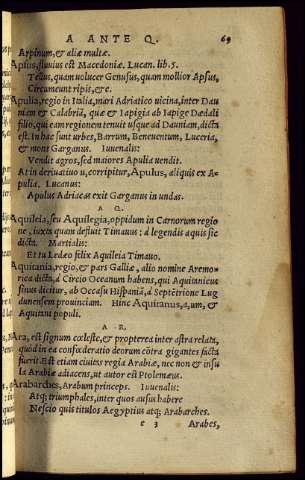 A ANTE Q. 69
Arpinum, & aliæ multæ.
Apsus, fluuius est Macedoniæ. Lucan. lib. 5.
Tellus, quam volucer Genusus, quam mollior Apsus,
Circumeunt ripis, & c.
Apulia, regio in Italia, mari Adriatico uicina, inter Dau
niam & Calabriã, quæ & Iapigia ab Iapige Dædali
filio, qui eam regionem tenuit usque ad Dauniam, dicta
est. In hac sunt urbes, Barrum, Beneuentum, Luceria,
& mons Garganus. Iuuenalis:
Vendit agros, sed maiores Apulia uendit.
At in deriuatiuo u, corripitur, Apulus, aliquis ex A-
pulia. Lucanus:
Apulus Adriacas exit Garganus in undas.
A Q.
Aquileia, seu Aquilegia, oppidum in Carnorum regio
ne, iuxta quam defluit Timauus: à legendis aquis sic
dicta. Martialis:
Et tu Ledæo felix Aquileia Timauo.
Aquitania, regio, & pars Galliæ, alio nomine Aremo-
rica dicta, à Circio Oceanum habens, qui Aquitanicus
sinus dicitur, ab Occasu Hispaniã, à Septẽtrione Lug
dunensem prouinciam. Hinc Aquitanus, a, um, &
Aquitani populi.
A R.
Ara, est signum cœleste, & propterea inter astra relata,
quòd in ea confœderatio deorum cõtra gigantes facta
fuerit. Est etiam ciuitas regia Arabiæ, nec non & insu
la Arabiæ adiacens, ut autor est Ptolemæus.
Arabarches, Arabum princeps. Iuuenalis:
Atq; triumphales, inter quos ausus habere
Nescio quis titulos Aegyptius atq; Arabarches.
e 3 Arabes,